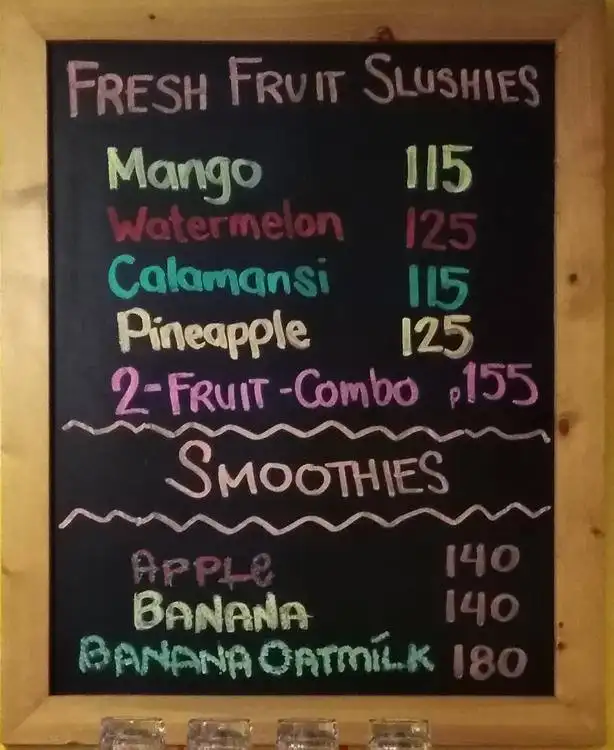 FRESH FRUIT SLUSHIES
Mango 115
Watermelon 125
Calamansi 115
Pineapple 125
2-FRUIT-COMBO P155
SMOOTHIES
APPLE 140
BANANA 140
BANANA OATMÍLK 180